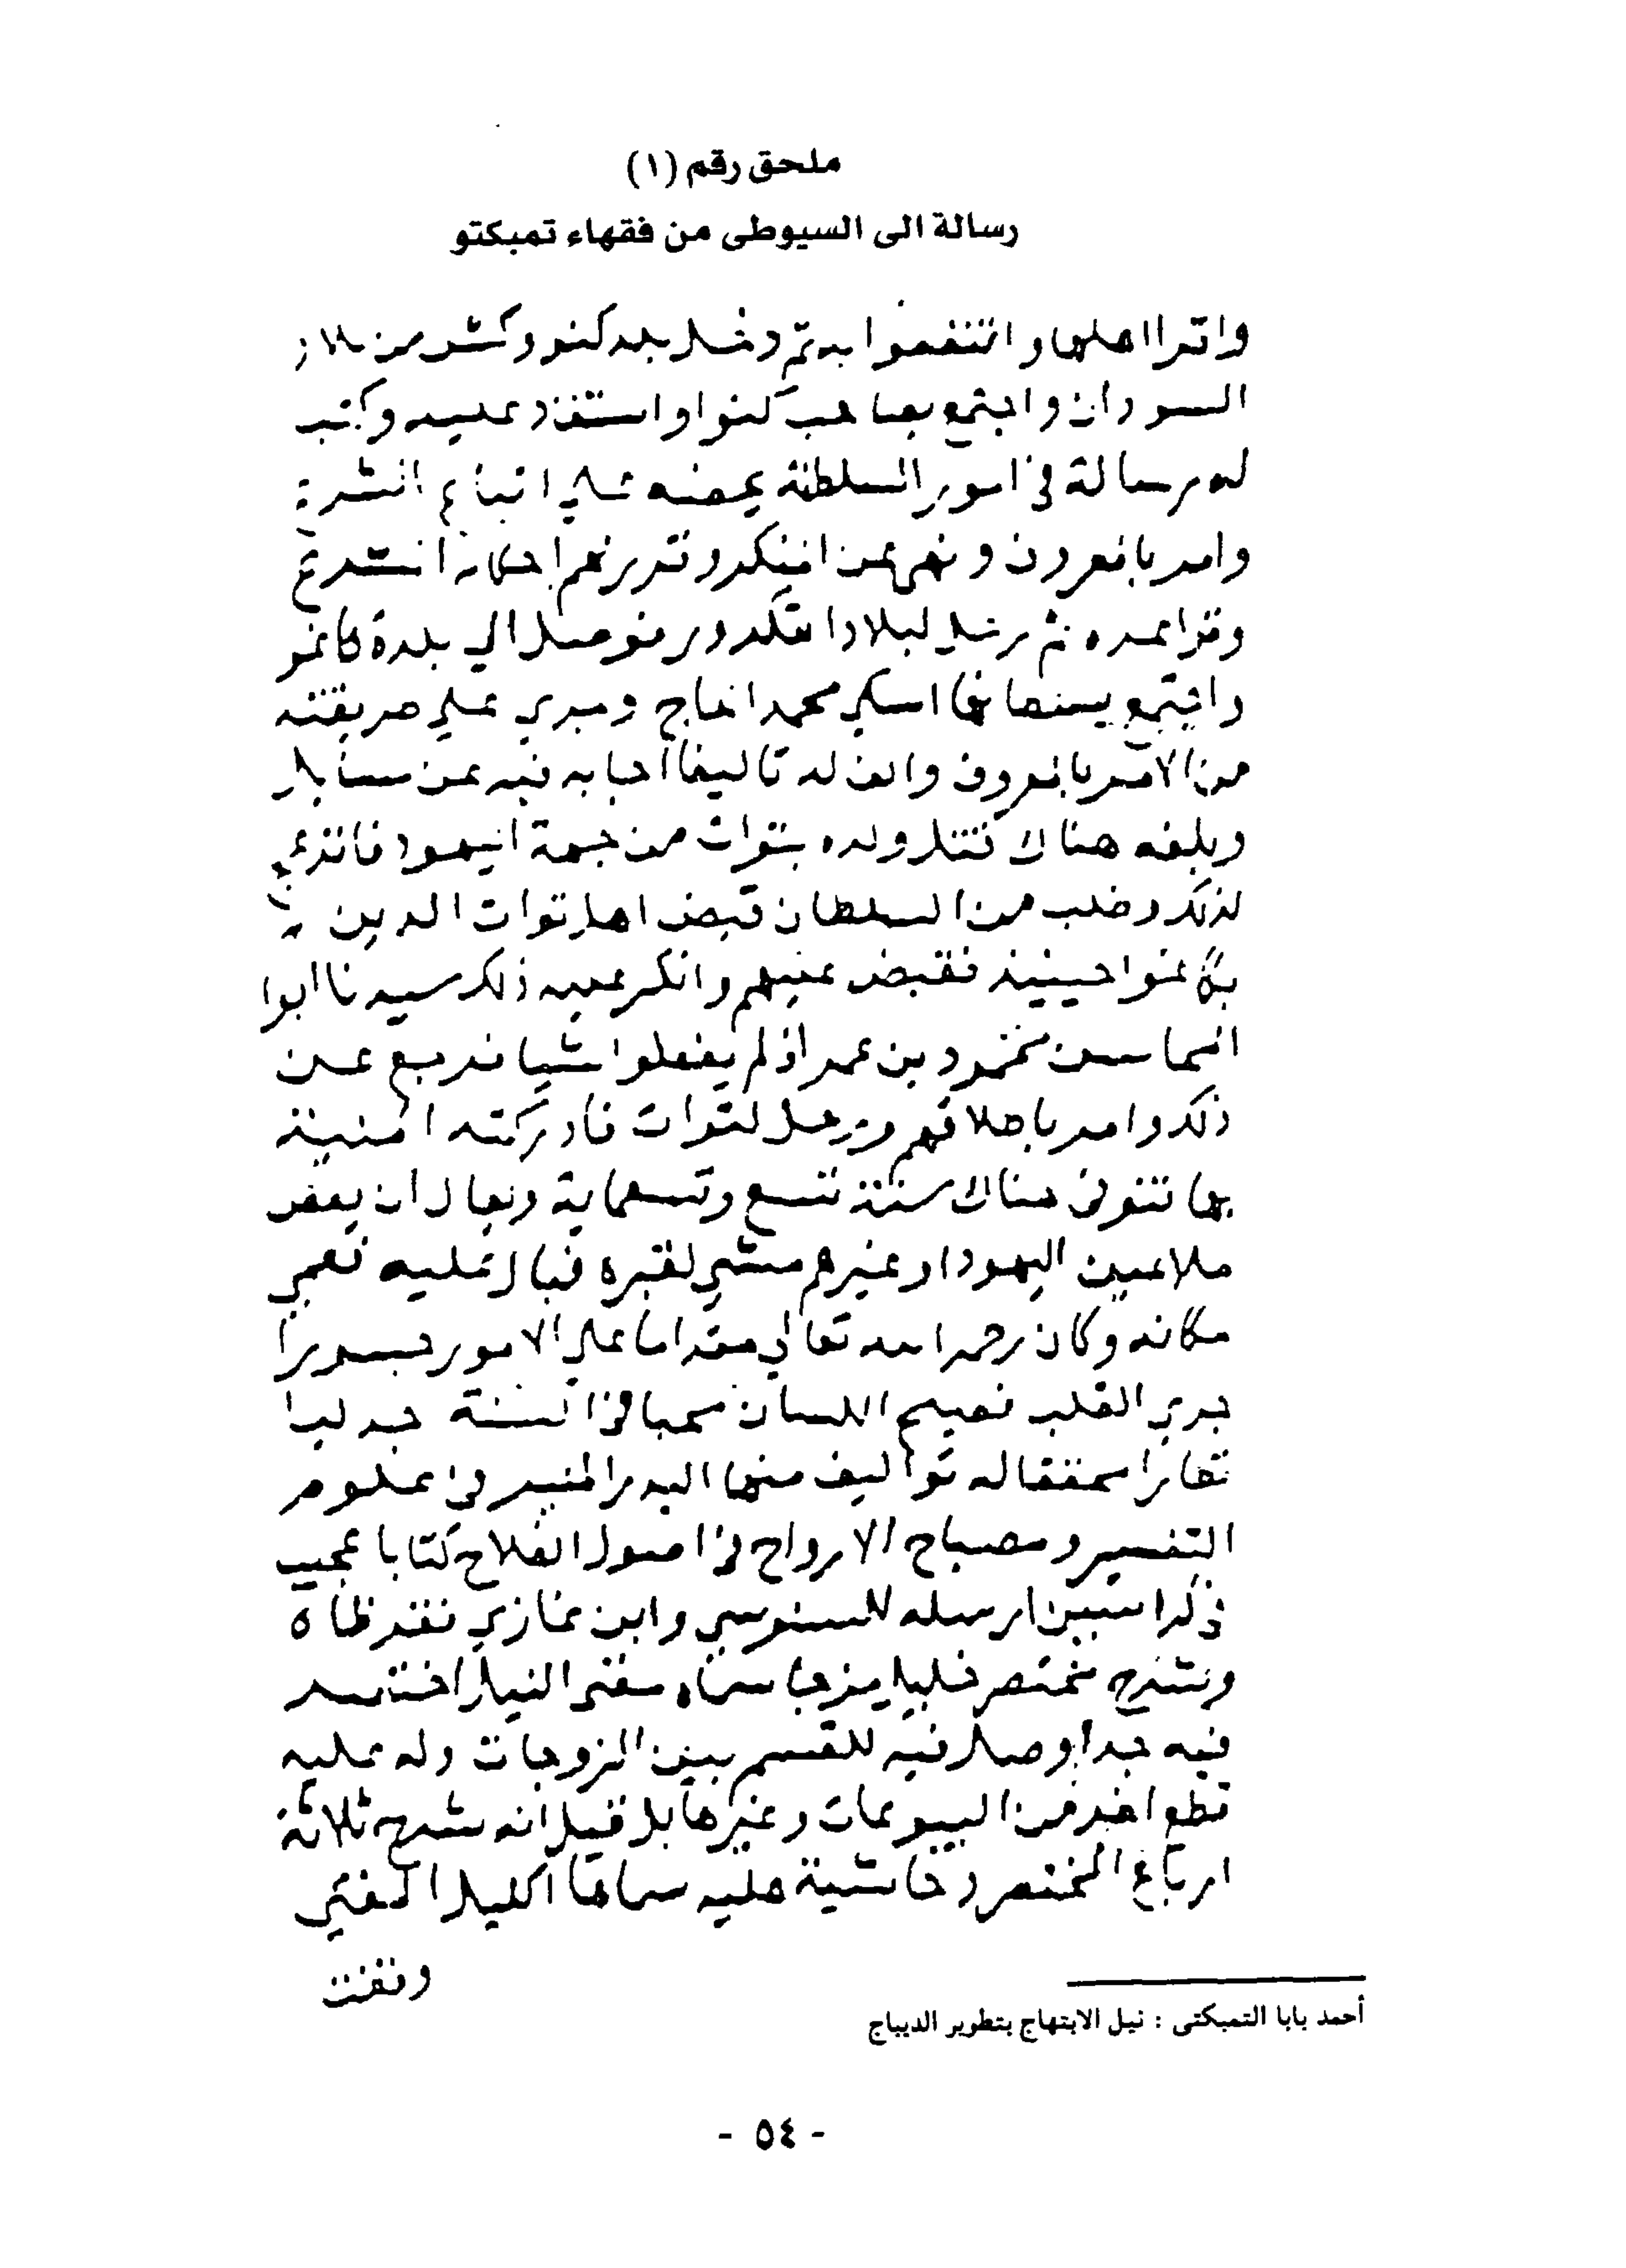 ملحق رقم (١)
رسالة الى السيوطى من فقهاء تمبكتو
واقرا اهلها وانتفعوا به ثم دخل بلد كنو وكشن من بلاد
السودان واجتمع بصاحب كنوا واستفاد عليه وكتب
له رسالة في امور السلطنة يحضه على اتباع الشرع
وامر بالمعروف ونهى عن المنكر وقرر لهم احكام الشرع
وقواعده ثم رحل لبلاد التكرور فوصل الي بلدة كاغو
واجتمع بسلطانها اسكي محمد الحاج وجري علي طريقته
من الامر بالمعروف والف له تاليفا اجابه فيه عن مسايل
وبلغه هناك قتل ولده بتوات من جهة اليهود فانزعج
لذلك وطلب من السلطان قبض اهل توات الذين
بكاغنوا حينيذ فقبض عليهم وانكر عليه ذلك سيدنا ابوا
المحاسن محمود بن عمر اذ لم يفعلوا شيا فرجع عن
ذلك وامر باطلاقهم ورحل لتوات فادركته المنية
بها فتوفي هناك سنة تسع وتسعماية ويقال ان بعض
ملاعين اليهود او غيرهم مشي لقبره فبال عليه فعمي
مكانه وكان رحمه الله تعالي مقداما علي الامور جسورا
جري القلب فصيح اللسان محبا في السنة جدليا
نظارا محققا له تواليف منها البدر المنير في علوم
التفسير ومصباح الارواح في اصول الفلاح كتابا عجيب
ارسله للسنوسي وابن غازي فقرظاه
وشرح مختصر خليل مزجا سماه مغني النبيل اختصر
فيه جدا وصل فيه للقسم بين الزوجات وله عليه
قطع اخر من البيوعات وغيرها بل قيل انه شرح ثلاثة
ارباع المختصر وحاشية عليه سماها اكليل المغني
أحمد بابا التمبكتى : نيل الابتهاج بتطوير الديباج
- ٥٤ -